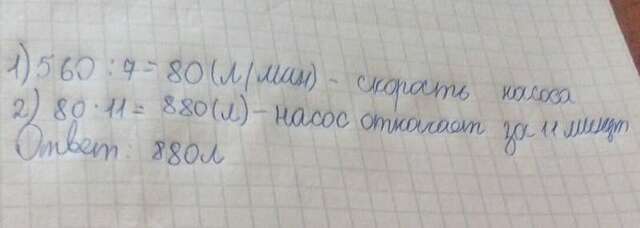 1) 560 : 7 = 80 (л/мин) - скорасть насоса
2) 80 · 11 = 880 (л) - насос откачает за 11 минут
Ответ: 880л